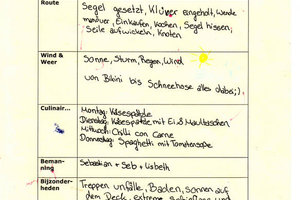 Route
Segel gesetzt, Klüver eingeholt, Wende
manöver, Einkaufen, Kochen, Segel hissen,
Seile aufwickeln, Knoten
Wind & Weer
Sonne, Sturm, Regen, Wind
von Bikini bis Schneehose alles dabei ;)
Culinair...
Montag: Käsespätzle
Dienstag: Käsespätzle mit Ei & Maultaschen
Mittwoch: Chilli con Carne
Donnerstag: Spaghetti mit Tomatensoße
Beman-
ning
Sebastian + Seb + Lisbeth
Bijzonder-
heden
Treppen unfälle, Baden, sonnen auf
dem Deck, extreme